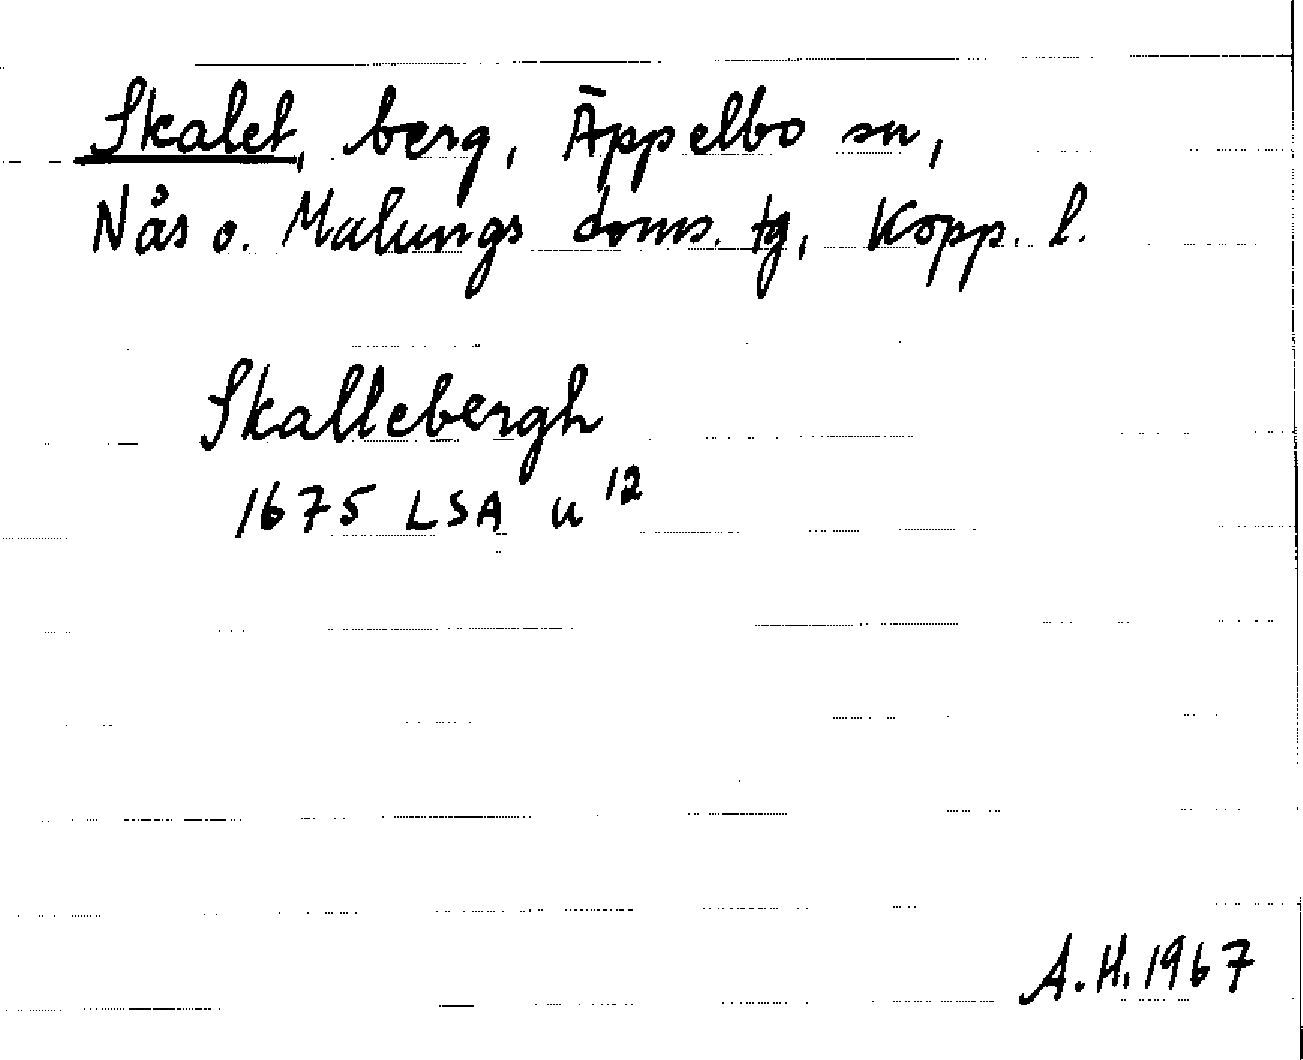 Skalet, berg, Äppelbo sn,
Nås o. Malungs doms. tg, Kopp. l.
Skallebergh
1675 LSA u 12
A.H. 1967